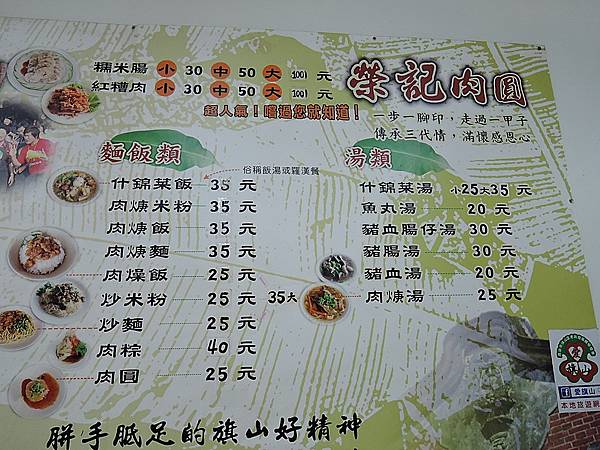 糯米腸 小 30 中 50 大 100 元
紅糟肉 小 30 中 50 大 100 元
超人氣！嚐過您就知道！
榮記肉圓
一步一腳印，走過一甲子
傳承三代情，滿懷感恩心
麵飯類
俗稱飯湯或羅漢餐
什錦菜飯 35 元
肉焿米粉 35 元
肉焿飯 35 元
肉焿麵 35 元
肉燥飯 25 元
炒米粉 25 元 35大
炒麵 25 元
肉粽 40 元
肉圓 25 元
湯類
什錦菜湯 小25大35 元
魚丸湯 20 元
豬血腸仔湯 30 元
豬腸湯 30 元
豬血湯 20 元
肉焿湯 25 元
胼手胝足的旗山好精神
愛旗山
本地旅遊網